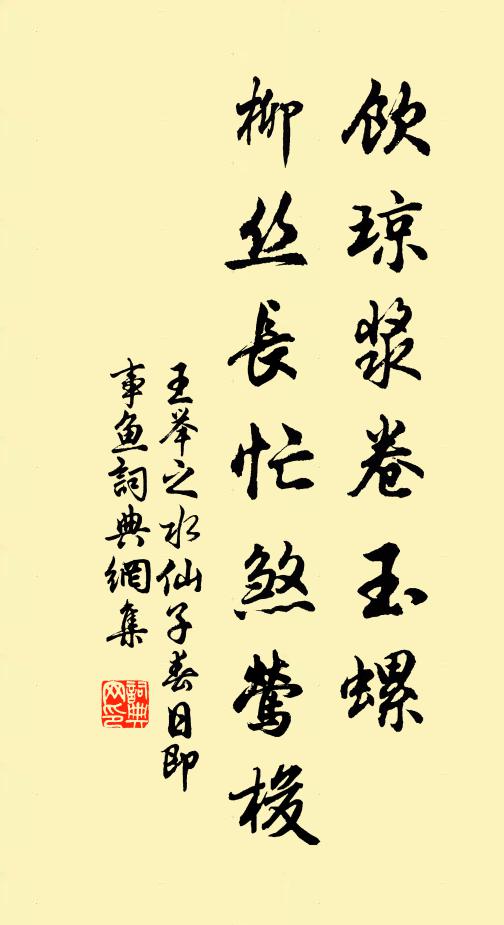 飲琼漿卷玉螺
柳丝長忙煞鶯梭
王举之水仙子春日即
事鱼詞典網集
詞典网印